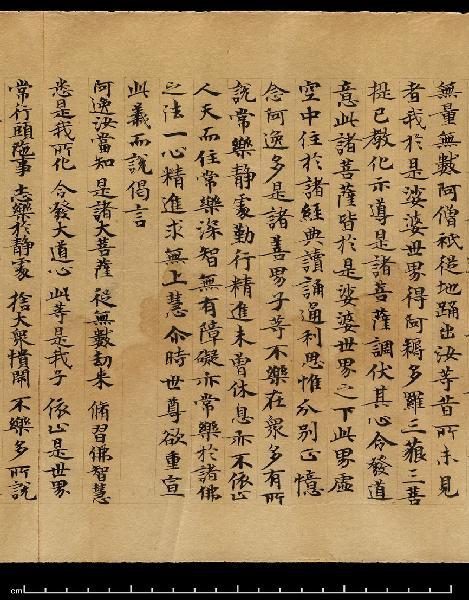 無量無數阿僧祇從地踊出汝等昔所未見
者我於是娑婆世界得阿耨多羅三藐三菩
提已教化示導是諸菩薩調伏其心令發道
意此諸菩薩皆於是娑婆世界之下此界虛
空中住於諸經典讀誦通利思惟分別正憶
念阿逸多是諸善男子等不樂在眾多有所
說常樂靜處勤行精進未曾休息亦不依止
人天而住常樂深智無有障礙亦常樂於諸佛
之法一心精進求無上慧尒時世尊欲重宣
此義而說偈言
阿逸汝當知 是諸大菩薩 從無數劫來 脩習佛智慧
悉是我所化 令發大道心 此等是我子 依止是世界
常行頭陁事 志樂於靜處 捨大眾憒閙 不樂多所說
cm